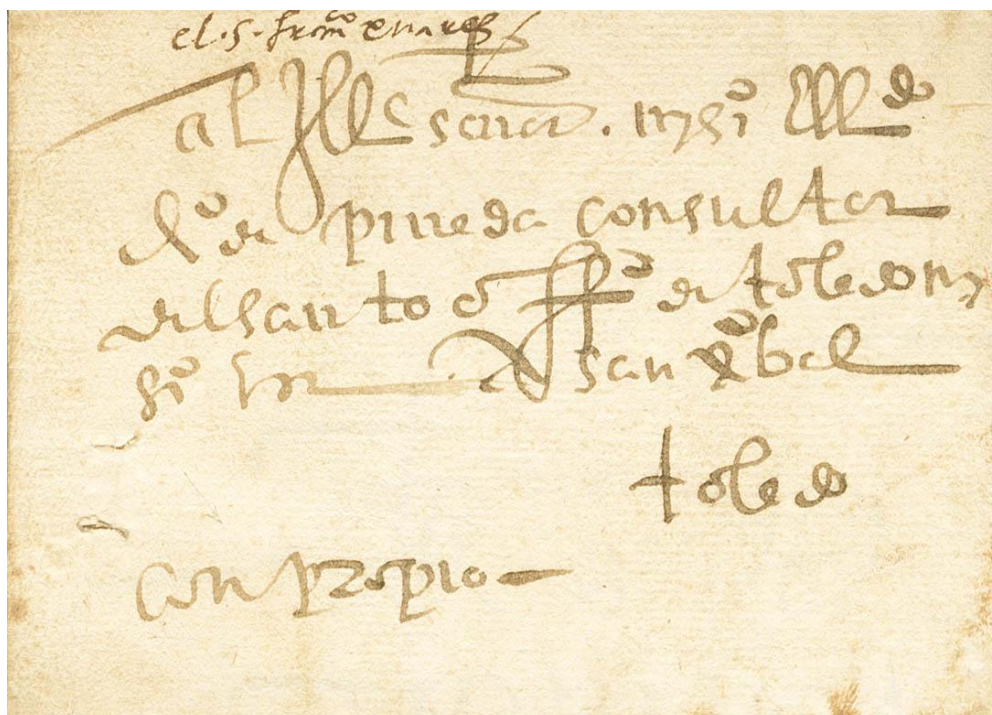 el. S. fran^co
al Ill^e señor. mi s^or el l^do
x^o de pineda consultor
del santo off^o de toledo my
s^or A san xpobal
toledo
con propio